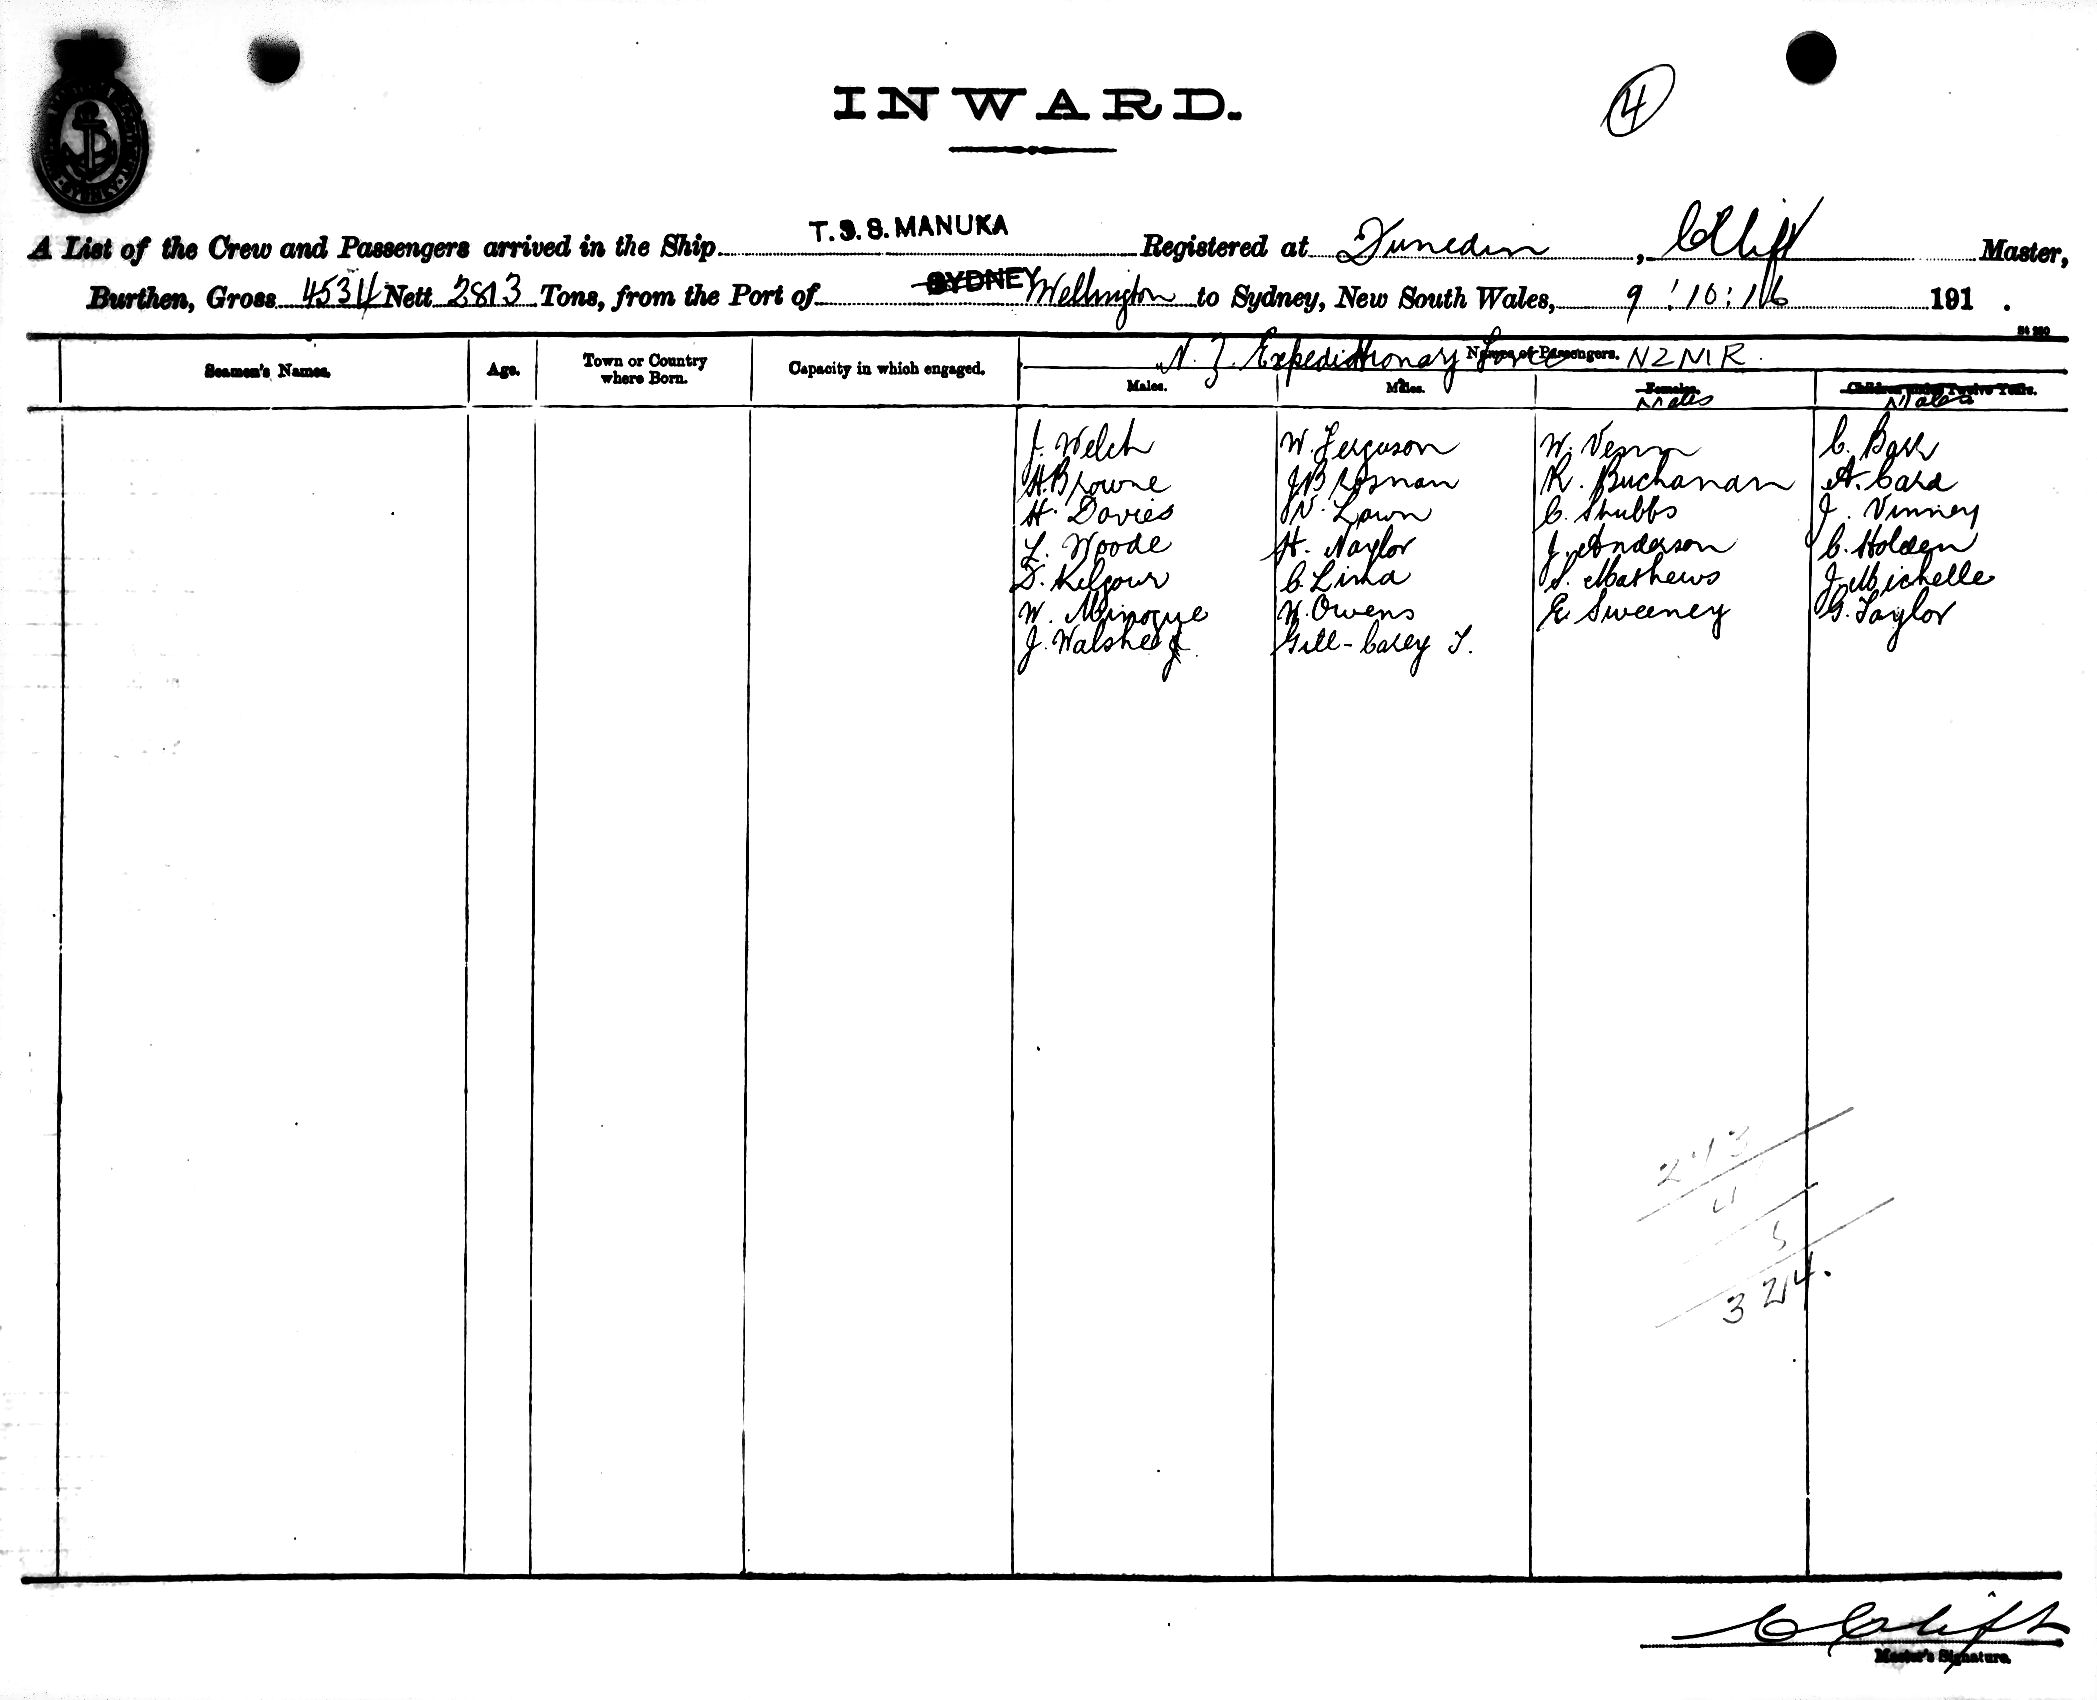 INWARD.
4
A List of the Crew and Passengers arrived in the Ship T.S.S. MANUKA Registered at Dunedin, C Clift Master,
Burthen, Gross 4534 Nett 2813 Tons, from the Port of SYDNEY Wellington to Sydney, New South Wales, 9:10:16 191 .
Seamen's Names. Age. Town or Country where Born. Capacity in which engaged. Names of Passengers. N.Z. Expeditionary Force
Males. Males. Females. Males Children under Twelve Years. Males
J. Welch W. Ferguson W. Venn C. Barr
H. Browne J Brosnan R. Buchanan A. Card
H. Davies N. Lawn C. Stubbs J. Vinney
L. Woode H. Naylor J. Anderson C. Holden
D. Kilgour C. Lind S. Mathews J. Michelle
W. Minogue W. Owens E. Sweeney G. Taylor
J. Walshe Gill-Carey T.
324.
C Clift
Master's Signature.